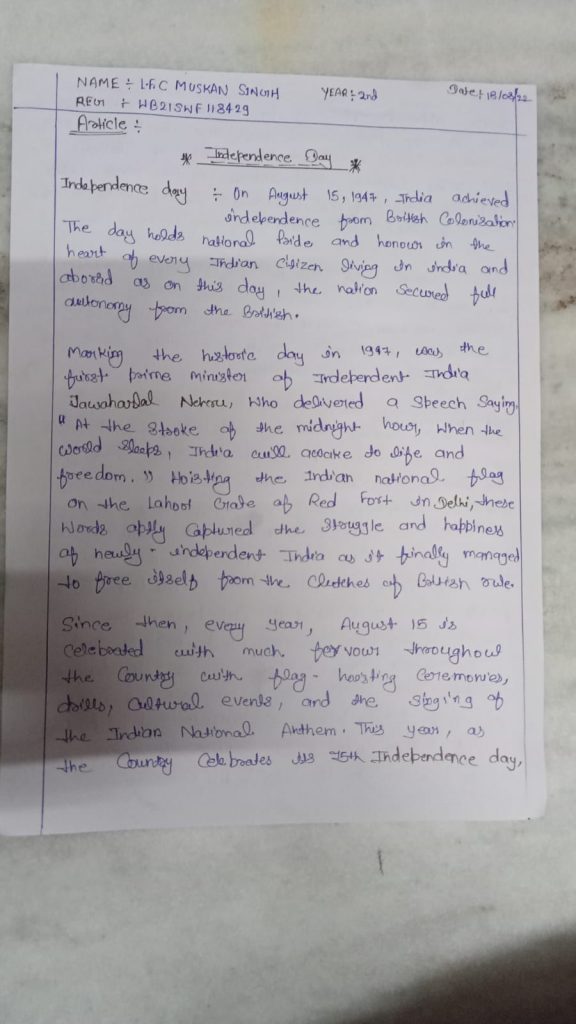 NAME ÷ LFC MUSKAN SINGH YEAR ÷ 2nd Date ÷ 18/08/22
REGI ÷ WB21SWF118429
Article ÷
* Independence Day *
Independence day ÷ On August 15, 1947, India achieved
independence from British Colonisation
The day holds national Pride and honour in the
heart of every Indian Citizen living in india and
abored as on this day, the nation Secured full
autonomy from the British.
Marking the historic day in 1947, was the
first prime minister of Independent India
Jawaharlal Nehru, who delivered a Speech Saying,
"At the Stroke of the midnight hour, when the
world sleeps, India will awake to life and
freedom." Hoisting the Indian national flag
on the Lahori Gate of Red Fort in Delhi, these
words aptly Captured the Struggle and happiness
of newly-independent India as it finally managed
to free itself from the Clutches of British rule.
Since then, every year, August 15 is
Celebrated with much fervour throughout
the Country with flag-hoisting Ceremonies,
drills, Cultural events, and the Singing of
the Indian National Anthem. This year, as
the Country Celebrates its 75th Independence day,